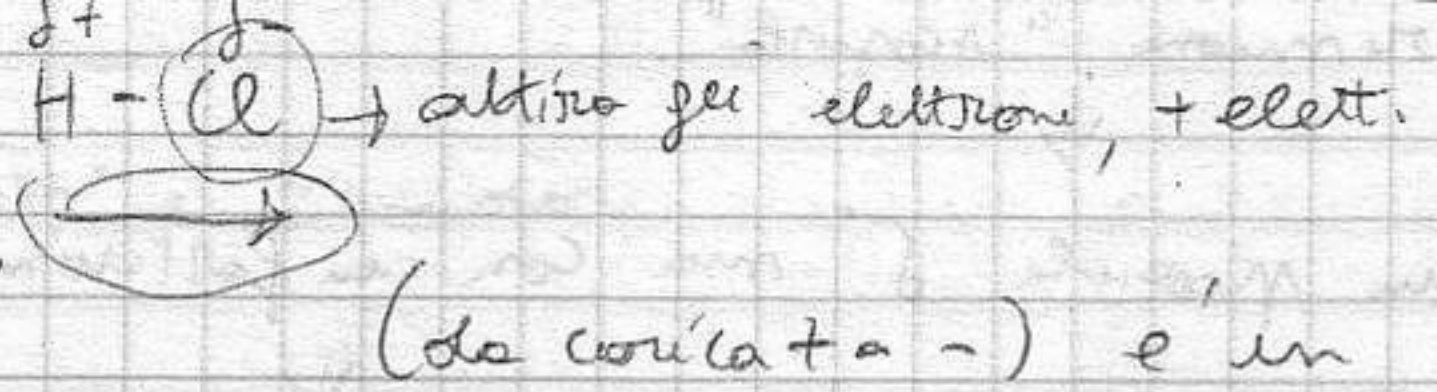 δ+ δ-
H - Cl → attira gli elettroni, + elett.
(da carica + a -) e' in